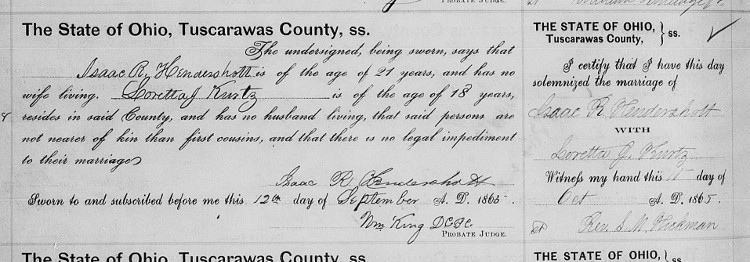 PROBATE JUDGE.
The State of Ohio, Tuscarawas County, ss.
The undersigned, being sworn, says that
Isaac R Hendershott is of the age of 21 years, and has no
wife living. Loretta J Kurtz is of the age of 18 years,
resides in said County, and has no husband living, that said persons are
not nearer of kin than first cousins, and that there is no legal impediment
to their marriage
Isaac R Hendershott
Sworn to and subscribed before me this 12th day of September A. D. 1865.
Wm King
PROBATE JUDGE.
The State of Ohio, Tuscarawas County, ss.
THE STATE OF OHIO,
Tuscarawas County, } ss.
I certify that I have this day
solemnized the marriage of
Isaac R Hendershott
WITH
Loretta J. Kurtz
Witness my hand this day of
Oct A. D. 1865.
Rev. S. M. Hickman
THE STATE OF OHIO, } ss.